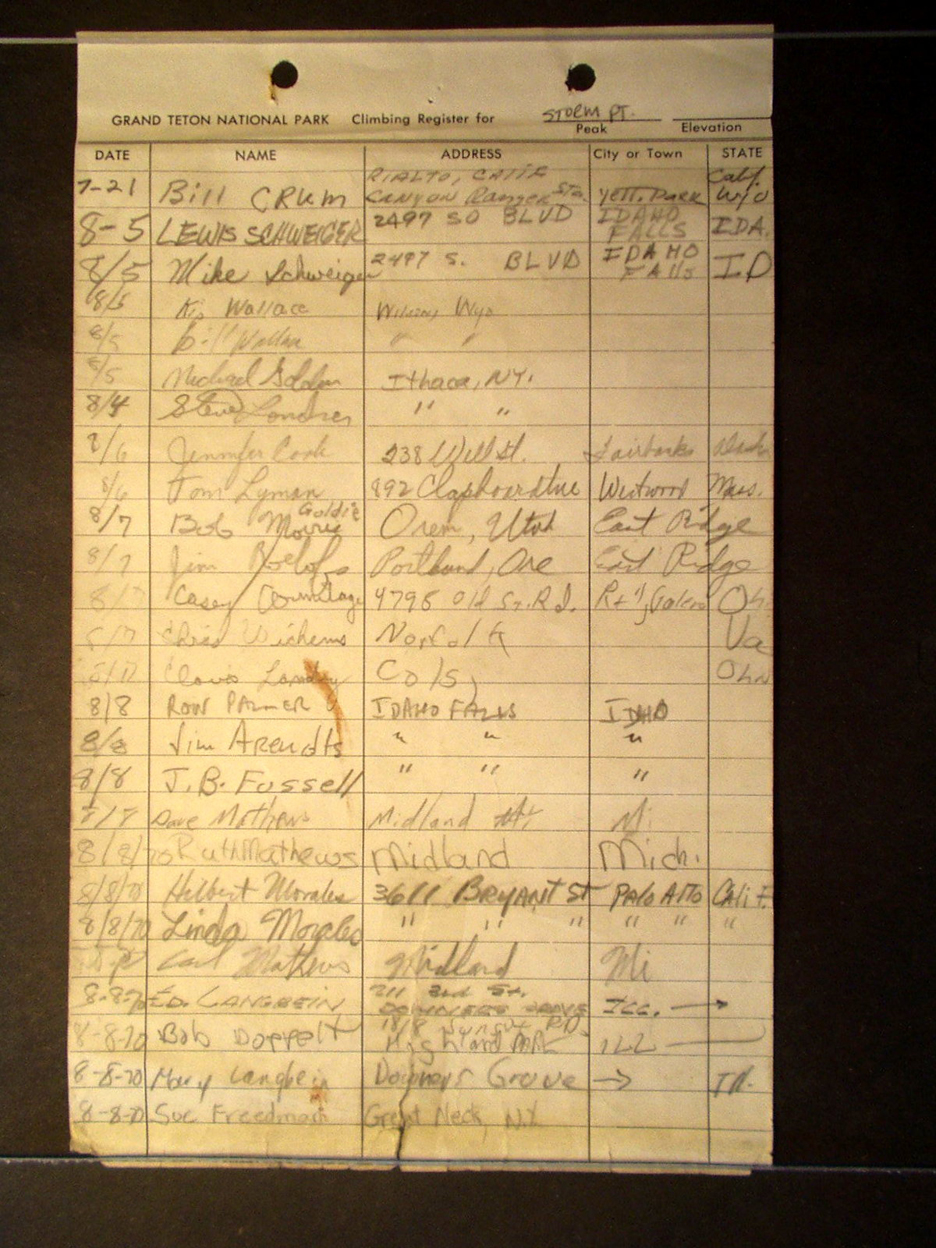 GRAND TETON NATIONAL PARK Climbing Register for STORM PT.
Peak Elevation
DATE NAME ADDRESS City or Town STATE
RIALTO, CALIF Calif.
7-21 Bill CRUM CANYON Ranger Sta. Yell. Park
8-5 LEWIS SCHWEIGER 2497 SO BLVD IDAHO FALLS IDA.
8/5 Mike Schweiger 2497 S. BLVD IDAHO Falls ID
8/5 Wallace Wyo
8/5 Bill " "
8/5 Michael Ithaca, N.Y.
8/4 Steve " "
8/6 Jennifer Cook 238 Well St. Fairbanks
8/6 Tom Lyman 892 Clapboardtree Westwood Mass.
8/7 Bob Goldie Morris Orem, Utah East Ridge
8/7 Jim Roelofs Portland, Ore East Ridge
8/7 Casey Armitage 4795 Old St. Rd. Rt 1, Galena
8/7 Chris Norfolk Va
Cols, Ohio
8/8 RON PALMER IDAHO FALLS IDAHO
8/8 Jim Arendts " " "
8/8 J.B. Fussell " " "
Dave Mathews Midland Mi
8/8/70 Ruth Mathews Midland Mich.
8/8/70 Hilbert Morales 3611 BRYANT ST PALO ALTO CALIF.
8/8/70 Linda Morales " " " " " "
Carl Mathews Midland Mi
8-8-70 ED. LANGBEIN 211 2nd St. DOWNERS GROVE ILL. →
8-8-70 Bob Doppelt 1818 Sunset RD. Highland PARK ILL
8-8-70 Mary Langbein Downers Grove → Ill.
8-8-70 Sue Freedman Great Neck, N.Y.